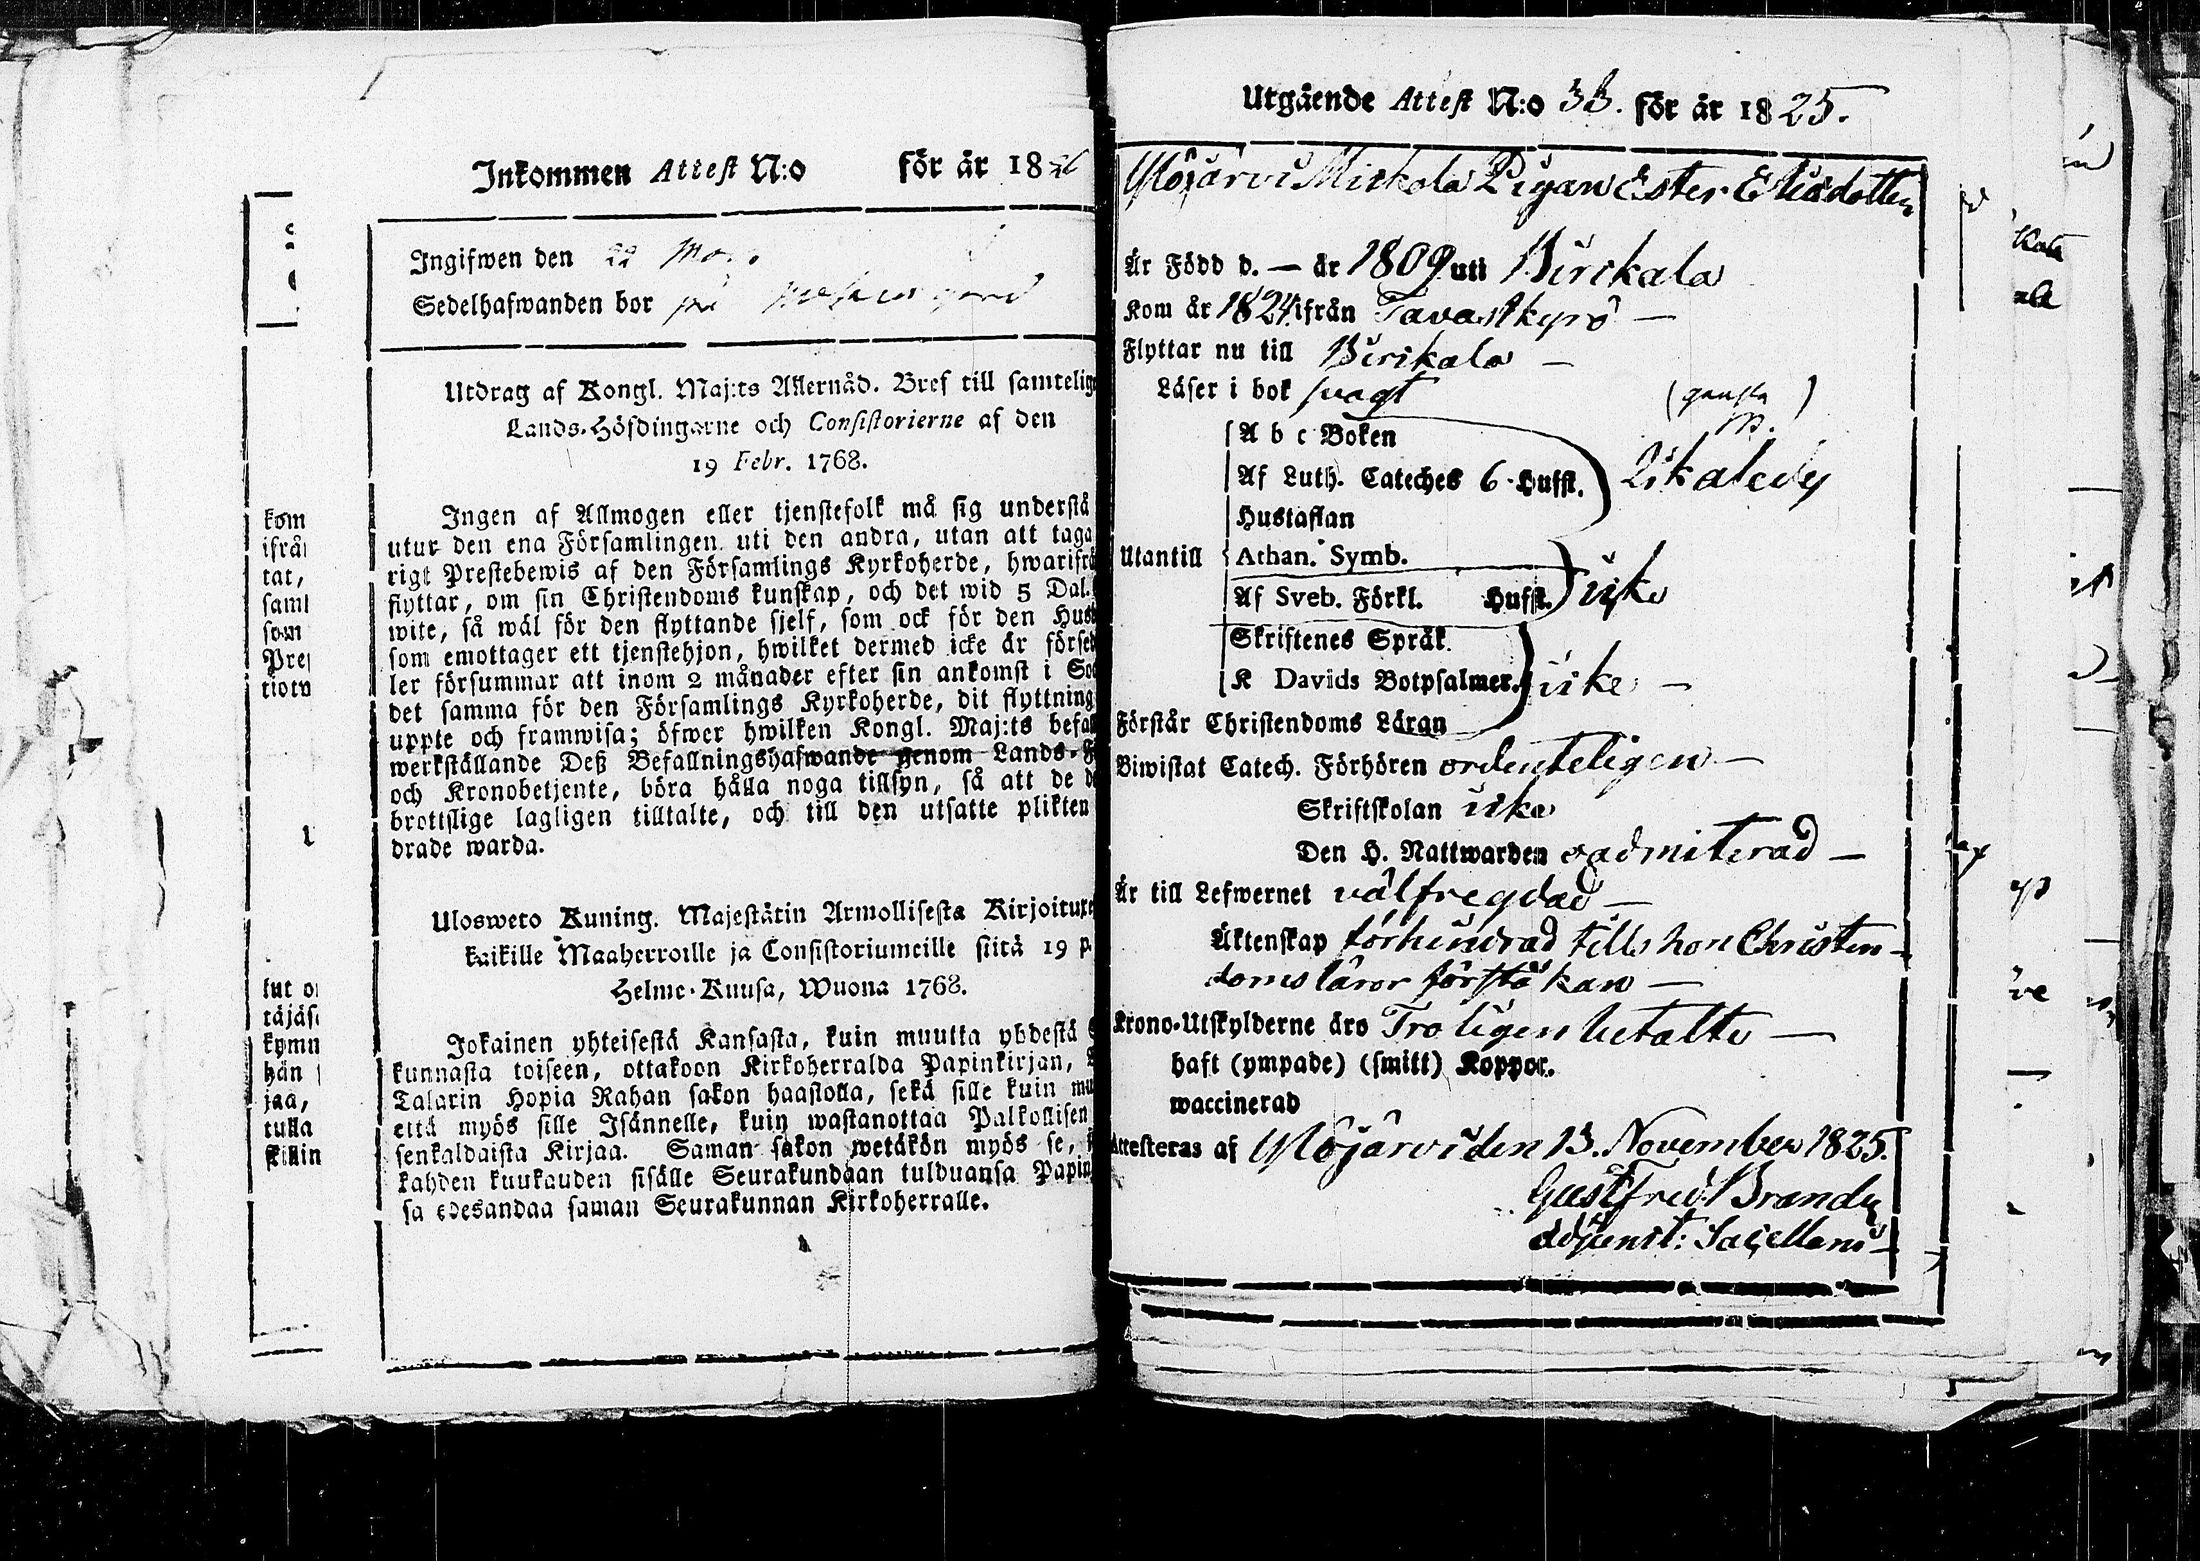 Inkommen Attest N:o för år 1826
Ingifwen den 22
Sedelhafwanden bor på
Utdrag af Kongl. Maj:ts Allernåd. Bref till samtelige
Lands-Höfdingarne och Consistorierne af den
19 Febr. 1768.
Ingen af Allmogen eller tjenstefolk må sig understå
utur den ena Församlingen uti den andra, utan att taga
rigt Prestebewis af den Församlings Kyrkoherde, hwarifrå
flyttar, om sin Christendoms kunskap, och det wid 5 Dal.
wite, så wäl för den flyttande sjelf, som ock för den Husb
som emottager ett tjenstehjon, hwilket dermed icke är försed
ler försummar att inom 2 månader efter sin ankomst i Soc
det samma för den Församlings Kyrkoherde, dit flyttning
uppte och framwisa; öfwer hwilken Kongl. Maj:ts befal
werkställande Deß Befallningshafwande genom Lands-F
och Kronobetjente, böra hålla noga tillsyn, så att de d
brottslige lagligen tilltalte, och till den utsatte plikten
drade warda.
Ulosweto Kuning. Majestätin Armollisesta Kirjoituxe
kaikille Maaherroille ja Consistoriumeille siitä 19 p.
Helme-Kuusa, Wuona 1768.
Jokainen yhteisestä Kansasta, kuin muutta yhdestä
kunnasta toiseen, ottakoon Kirkoherralda Papinkirjan,
Talarin Hopia Rahan sakon haastolla, sekä sille kuin mu
että myös sille Isännelle, kuin wastanottaa Palkollisen
senkaldaista Kirjaa. Saman sakon wetäkön myös se,
kahden kuukauden sisälle Seurakundaan tulduansa Papin
sa edesandaa saman Seurakunnan Kirkoherralle.
kom
ifrå
tat,
saml
som
Pres
tiow
lut o
täjäs
kymn
hän
jaa,
tulla
skillin
Utgående Attest N:o 33. för år 1825.
Ylöjärvi Mickola Pigan Ester Eliædotter
Är Född d. — år 1809 uti Birkala
Kom år 1824 ifrån Tavastkyrö —
Flyttar nu till Birkala —
Läser i bok svagt (ganska)
A b c Boken
Af Luth. Cateches 6 Hufst.
Hustaflan
Utantill Athan. Symb.
Af Sveb. Förkl. Hufst. icke
Skriftenes Språk
K Davids Botpsalmer. icke —
Förstår Christendoms Läran
Biwistat Catech. Förhören ordenteligen —
Skriftskolan icke
Den H. Nattwarden oadmiterad —
Är till Lefwernet välfregdad —
Äktenskap förhindrad tills hon Christen-
doms läror förstå kan —
Krono-Utskylderne äro Troligen betalte —
haft (ympade) (smitt) Koppor.
waccinerad
Attesteras af Ylöjärvi den 13. November 1825.
Gustf fred Brander
Adjunct: Sacellani